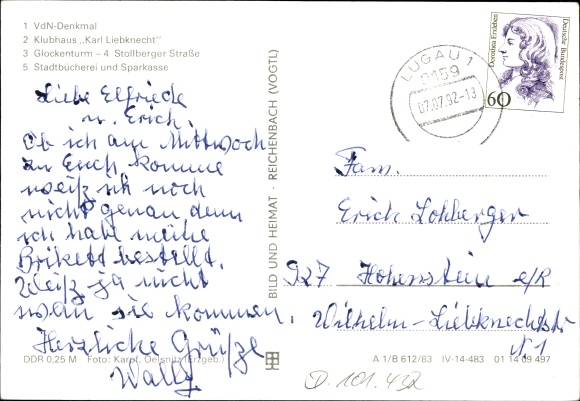 1 VdN-Denkmal
2 Klubhaus „Karl Liebknecht"
3 Glockenturm – 4 Stollberger Straße
5 Stadtbücherei und Sparkasse
Liebe Elfriede
u. Erich.
Ob ich am Mittwoch
zu Euch komme
weiß ich noch
nicht genau, denn
ich habe meine
Brikett bestellt.
Weiß ja nicht
wann sie kommen.
Herzliche Grüße
Wally
DDR 0,25 M Foto: Karpf, Oelsnitz (Erzgeb.)
BILD UND HEIMAT · REICHENBACH (VOGTL)
LUGAU 1
9159
07.07.92-13
Dorothea Erxleben
Deutsche Bundespost
60
Fam.
Erich Lohberger
927 Hohenstein e/R
Wilhelm-Liebknechtstr
N 1
A 1/B 612/83 IV-14-483 01 14 09 497
D. 101.432